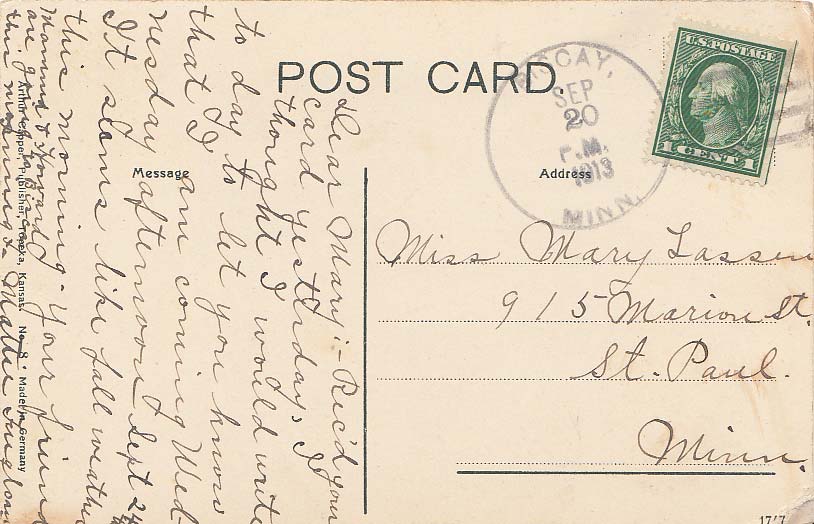 POST CARD
Message
Address
SEP
20
P.M.
1913
MINN.
U.S. POSTAGE
1 CENT 1
Miss Mary Lassen
915 Marion St.
St. Paul.
Minn.
Dear Mary:- Rec'd your
card yesterday, I
thought I would write
to day to let you know
that I am coming Wed-
nesday afternoon Sept 24
It seems like fall weather
this morning- Your friend
Mamma & Howard
are going to
this morning. Mattie
Publisher, Topeka, Kansas. No. 8. Made in Germany
17'7